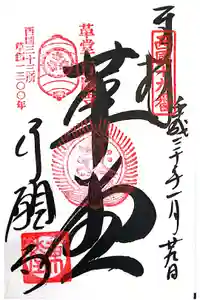 奉拝
西国十九番
平成三十年一月廿日
革堂
革堂行願寺
西国三十三所
草創一三〇〇年
行願寺